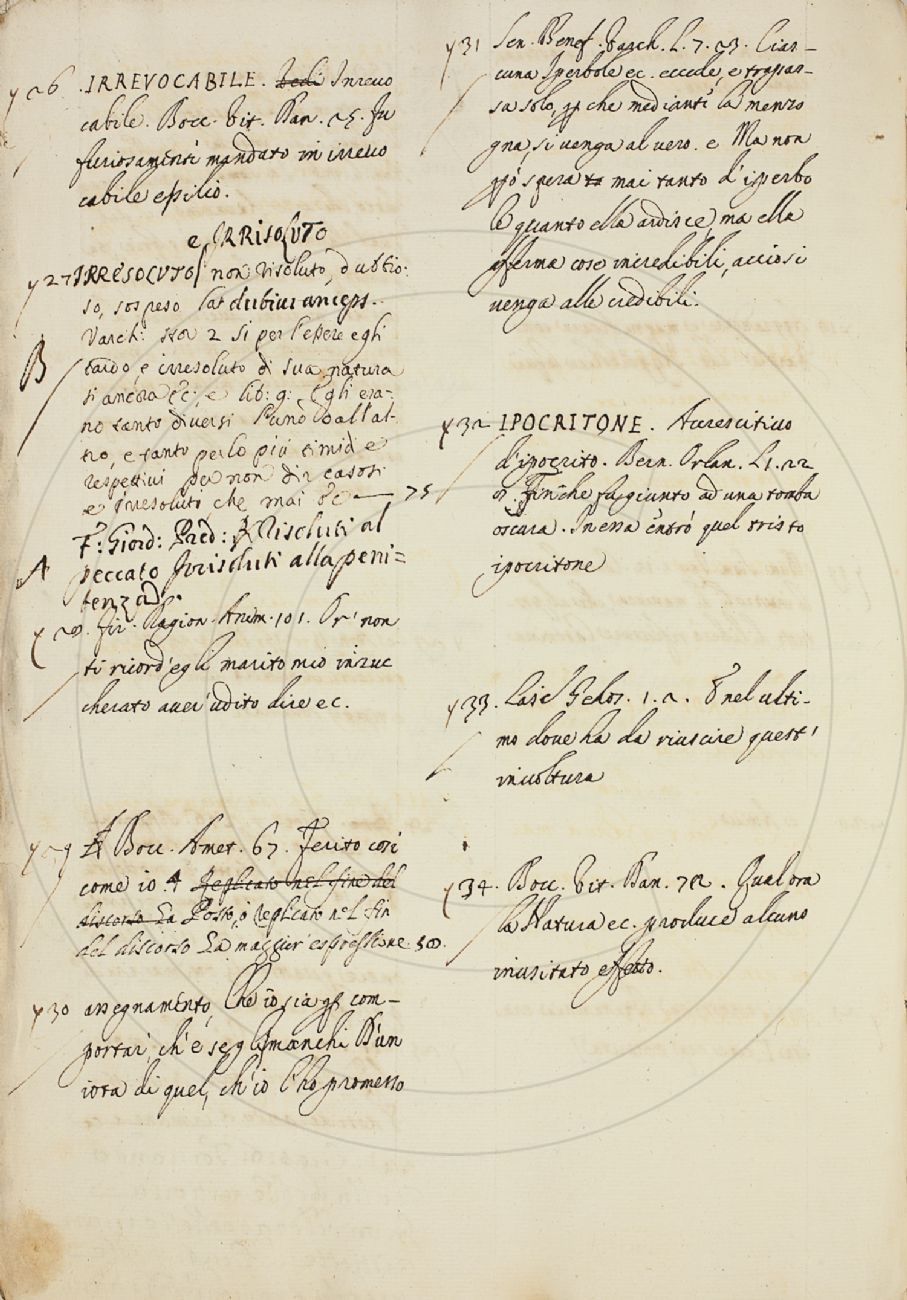 26 . IRREVOCABILE . Vedi Inrevo
cabile . Bocc. Vit. Dan. 25. Fu
furiosamente mandato in irrevo
cabile esilio .
e IRRISOLUTO
27 IRRESOLUTO non risoluto, dubbio:
so, sospeso lat dubius anceps.
Varch: stor 2 Si per l'essere egli
tardo, e irresoluto di sua natura
si ancora &c: e lib: 9: Egli era-
no tanto diversi l'uno dall'al-
tro, e tanto per lo più timidi e
respettivi per non dir casosi
e irresoluti, che mai &c 75
B
F: Giord: Pred: Risoluti al
peccato Irrisoluti alla peni=
tenza
A
28. Fir. Ragion. Anim. 101. Or' non
ti ricord'egli marito mio inzuc
cherato aver' udito dire ec.
29 Bocc. Amet. 67. Ferito così
come io. Replicato nel fine del
discorso La Posto, o Replicato nel fin
del discorso La maggior' espressione. 30.
30 assegnamento, Che io sia per com-
portar', ch'e' se gli manchi D'un
iota di quel, ch'io l'ho promesso
31 Sen. Benef. Varch. L. 7. 23. Cias-
cuna Iperbole ec. eccede, e trapas-
sa solo, per che mediante la menzo
gna, si venga al vero. e Ma non
però spera to mai tanto d'iperbo
le quanto ella ardisce, ma ella
afferma cose incredibili, acciò si
venga alle credibili.
32 IPOCRITONE . Accrescitivo
d'ipocrito. Bern. Orlan. L 1. 22
Finche fu giunto ad una tomba
oscura. In essa entrò quel tristo
ipocritone
33. Lasc Gelos. 1. 2. E nel ulti-
mo dove ha da riuscire quest'
involtura
34. Bocc. Vit. Dan. 72. Qual ora
la Natura ec. produce alcuno
inusitato effetto.